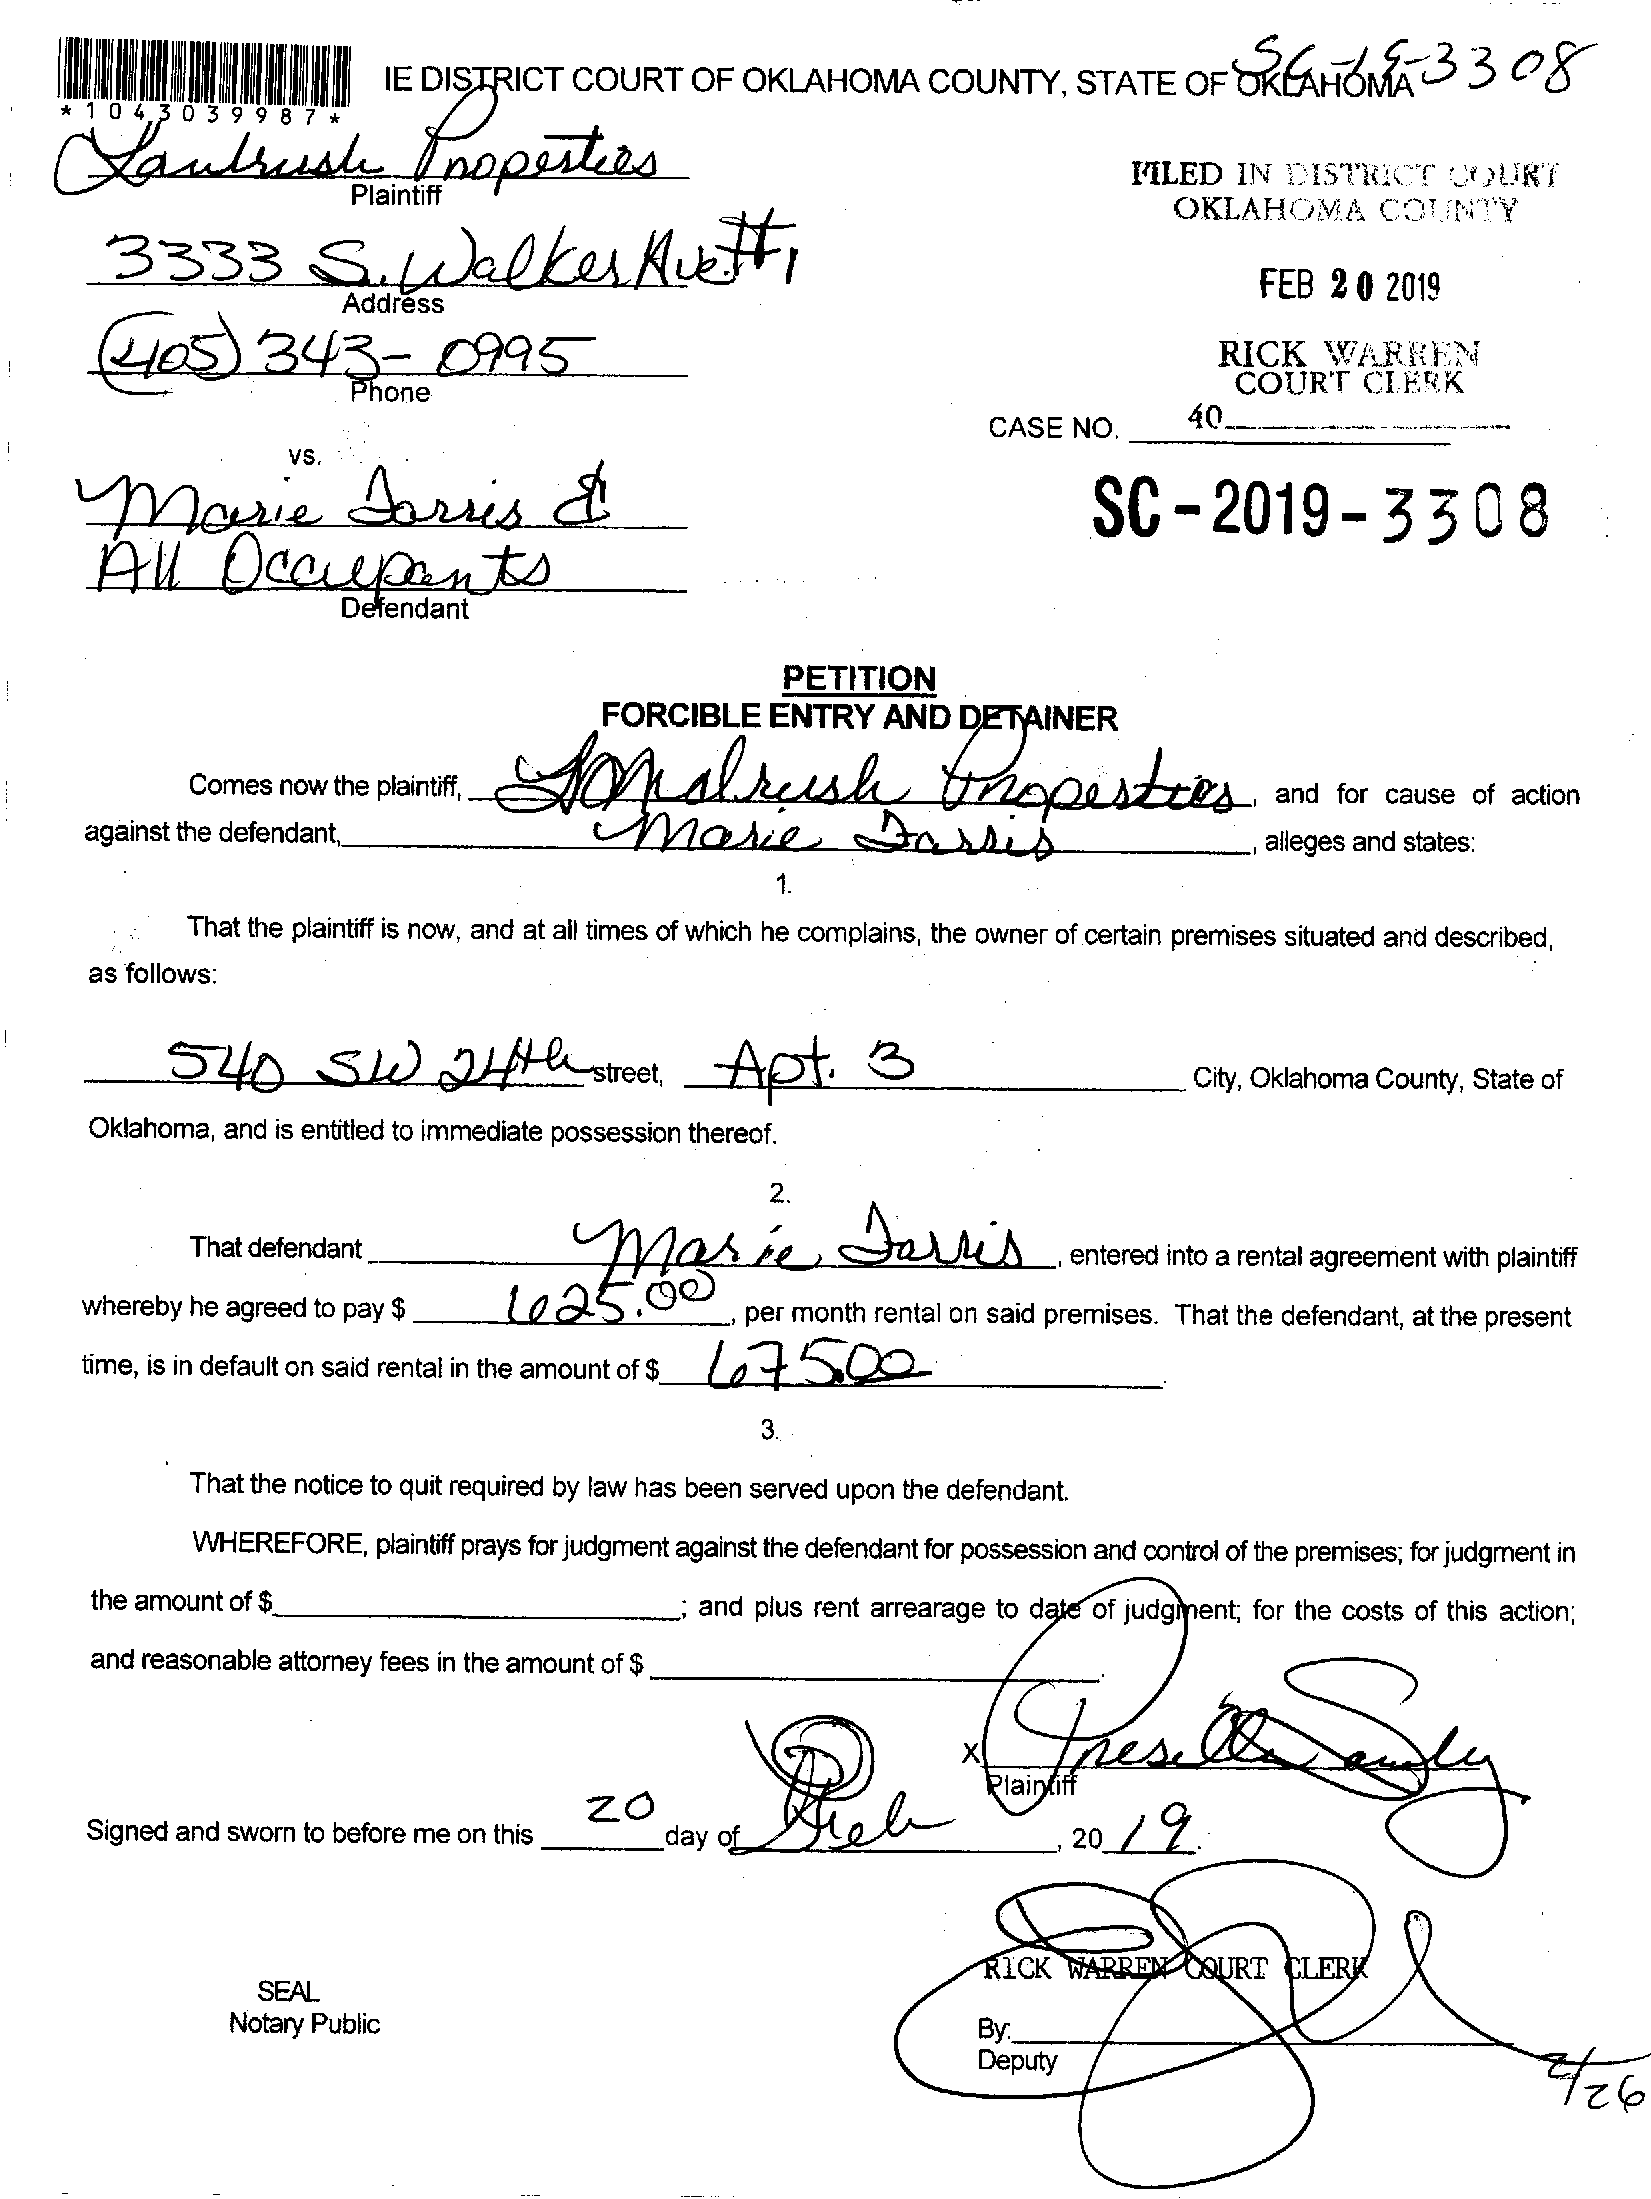 SC-19-3308
IE DISTRICT COURT OF OKLAHOMA COUNTY, STATE OF OKLAHOMA
*1043039987*
Properties
Plaintiff
FILED IN DISTRICT COURT
OKLAHOMA COUNTY
3333 S. Walker Ave #1
Address
FEB 20 2019
(405) 343-0995
Phone
RICK WARREN
COURT CLERK
CASE NO. 40
vs.
Marie Farris &
All Occupants
Defendant
SC-2019-3308
PETITION
FORCIBLE ENTRY AND DETAINER
Comes now the plaintiff, Properties, and for cause of action
against the defendant, Marie Farris, alleges and states:
1.
That the plaintiff is now, and at all times of which he complains, the owner of certain premises situated and described,
as follows:
540 SW 24th street, Apt. 3 City, Oklahoma County, State of
Oklahoma, and is entitled to immediate possession thereof.
2.
That defendant Marie Farris, entered into a rental agreement with plaintiff
whereby he agreed to pay $ 625.00, per month rental on said premises. That the defendant, at the present
time, is in default on said rental in the amount of $ 675.00
3.
That the notice to quit required by law has been served upon the defendant.
WHEREFORE, plaintiff prays for judgment against the defendant for possession and control of the premises; for judgment in
the amount of $ ; and plus rent arrearage to date of judgment; for the costs of this action;
and reasonable attorney fees in the amount of $ .
X
Plaintiff
Signed and sworn to before me on this 20 day of Feb, 20 19.
RICK WARREN COURT CLERK
SEAL
Notary Public
By:
Deputy
2/26